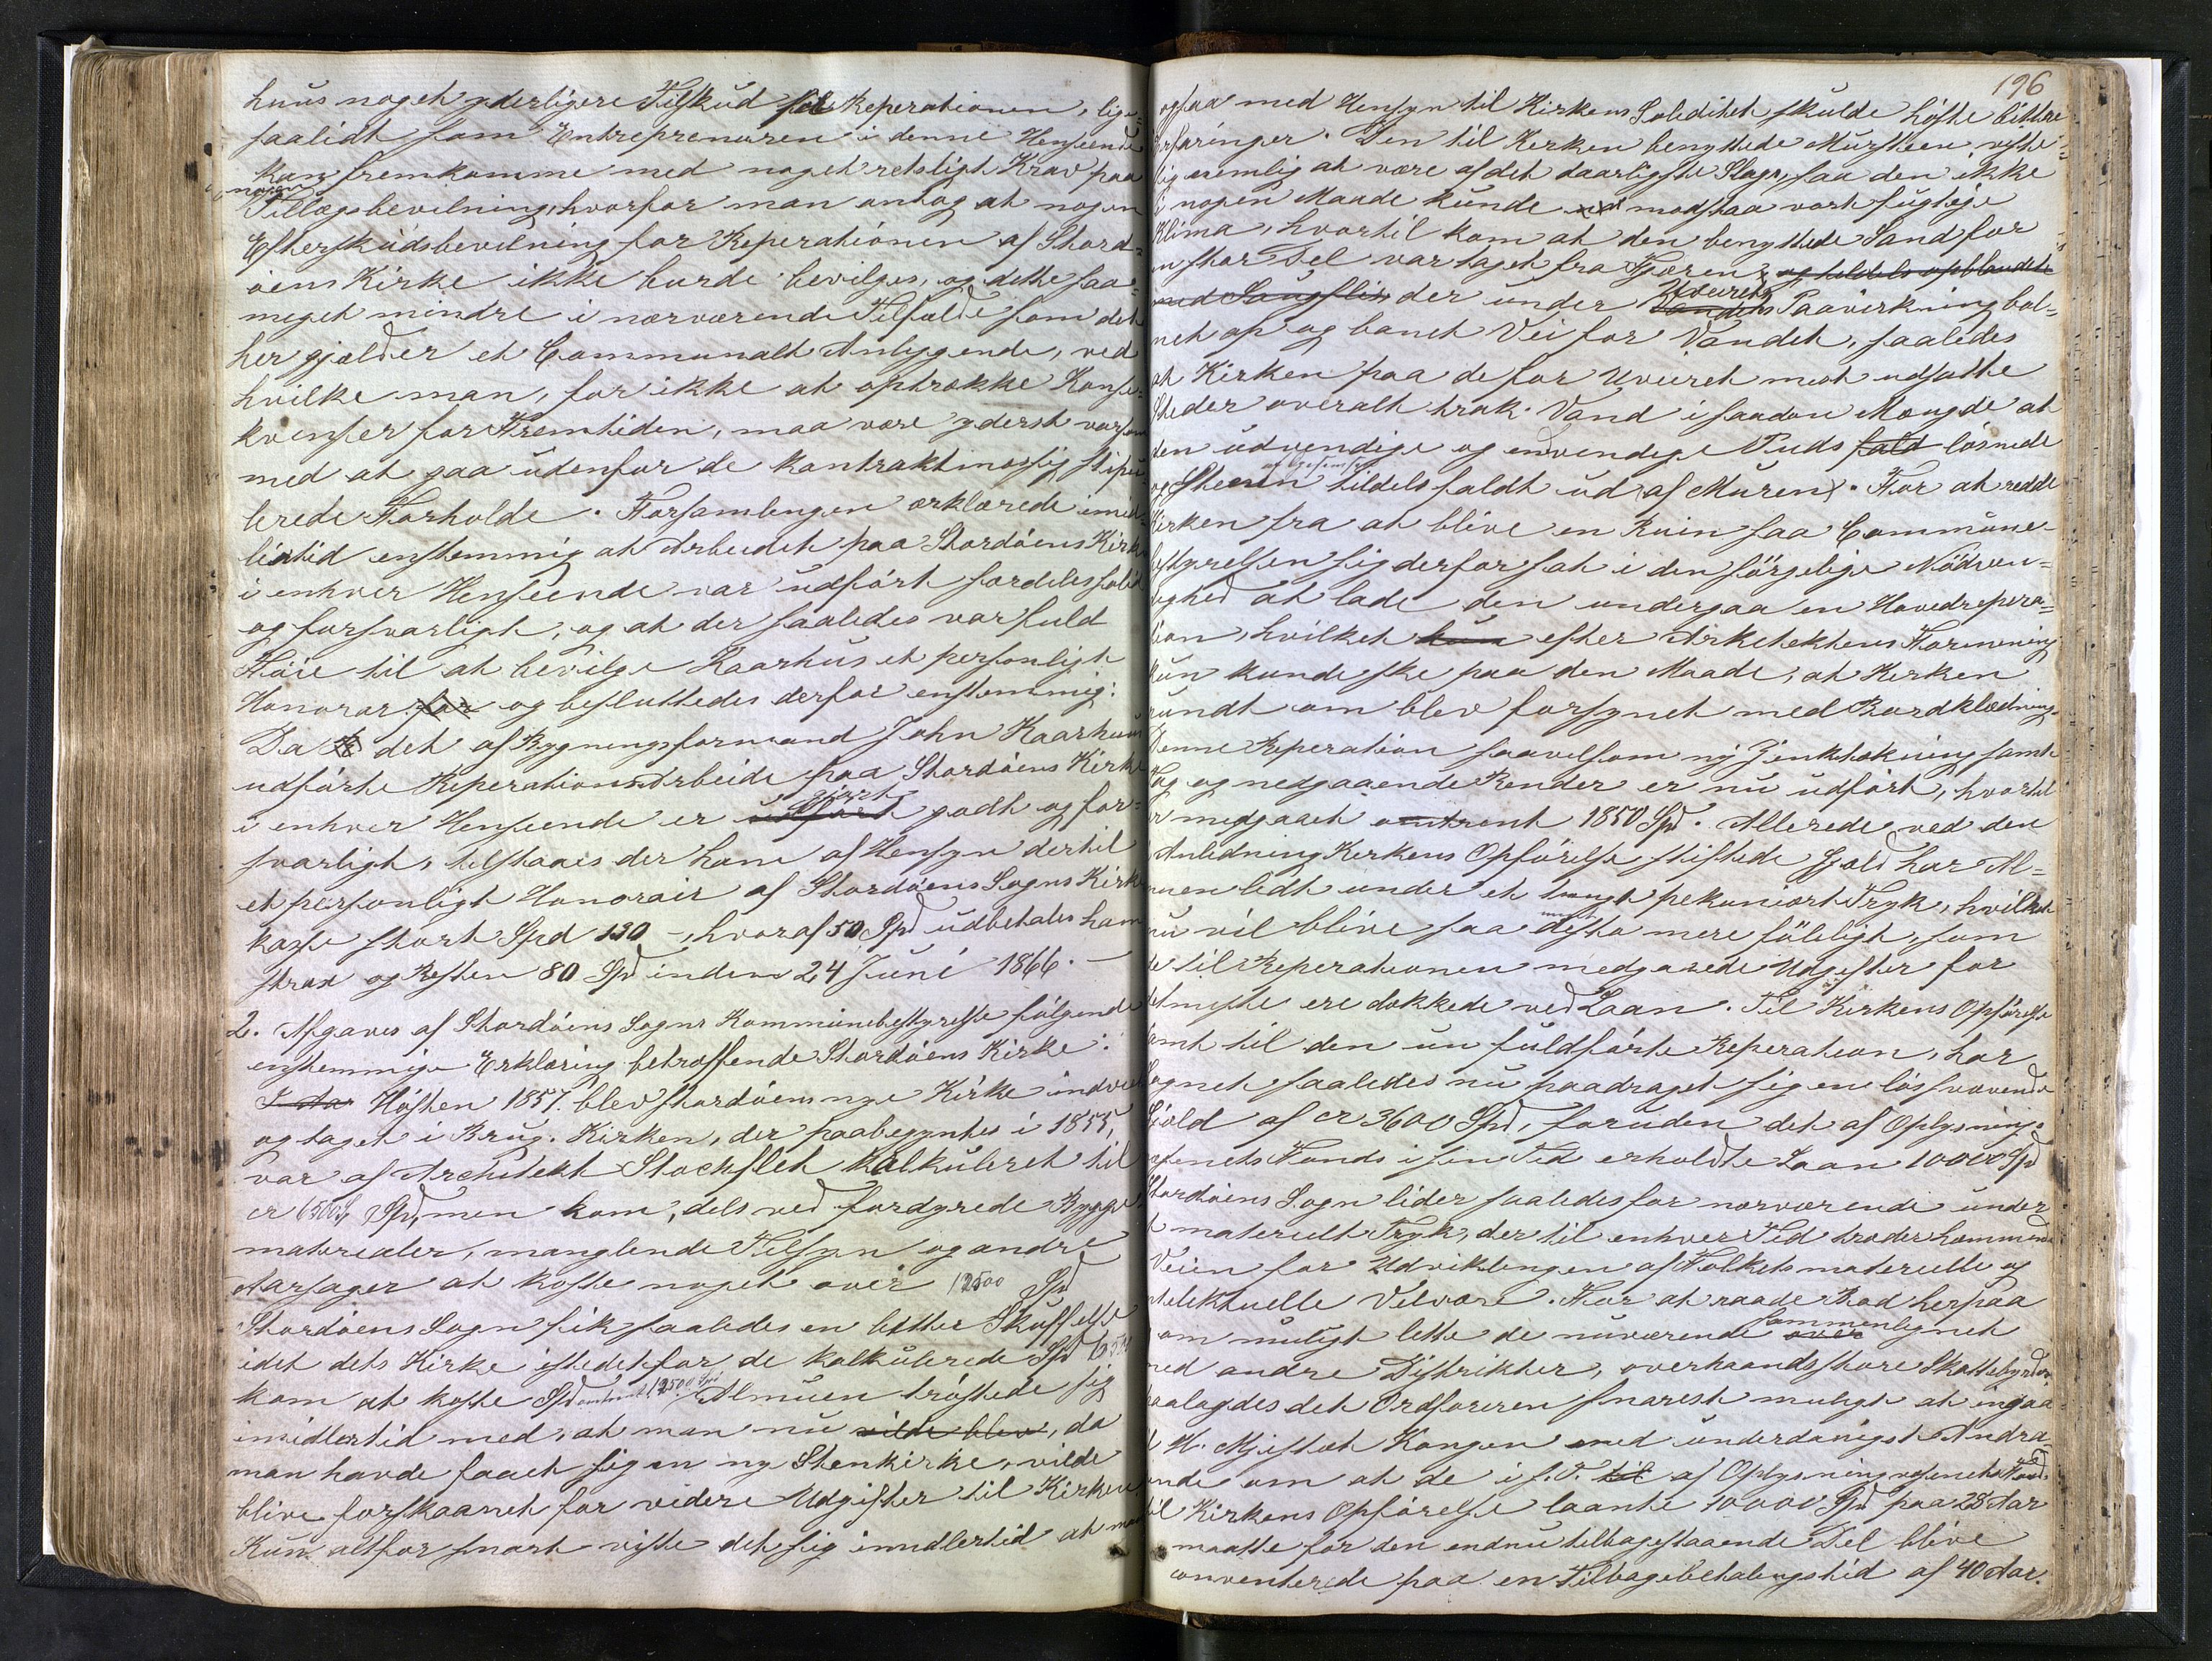 huus noget yderligere Tilskud til Reperationen, lige-
saalidt som Entreprenøren i denne Henseende
kan fremkomme med noget retsligt Krav paa
nogen
Tillægsbevilning, hvorfor man antog at nogen
Efterskudsbevilning for Reperationen af Stord-
øens Kirke ikke burde bevilges, og dette saa
meget mindre i nærværende Tilfælde som det
her gjælder et Communalt Anliggende, ved
hvilke man, for ikke at optrække Konse-
kvenser for Fremtiden, maa være yderst varsom
med at gaa udenfor de kontraktmæssig stipu-
lerede Forholde. Forsamlingen erklærede imid-
lertid enstemmig at Arbeidet paa Stordøens Kirke
i enhver Henseende var udført særdeles solid
og forsvarligt, og at der saaledes var fuld
Føie til at bevilge Kaarhus et personligt
Honorar for og besluttedes derfor enstemmig:
Da det af Bygningsformand John Kaarhuus
udførte Reperations Arbeide paa Stordøens Kirke
gjort
i enhver Henseende er udført godt og for-
svarligt, tilstaaes der ham af Hensyn dertil
et personligt Honorair af Stordøens Sogns Kirke
kasse stort Spd 130 -, hvoraf 50 Spd udbetales ham
strax og Resten 80 Spd inden 24 Juni 1866. -
2. Afgaves af Stordøens Sogns Kommunebestyrelse følgende
enstemmige Erklæring betræffende Stordøens Kirke:
I Aar Høsten 1857. blev Stordøens nye Kirke indviet
og taget i Brug. Kirken, der paabegyntes i 1855,
var af Architekt Stockfleth kalkuleret til
cr 6500 Spd, men kom, dels ved fordyrede Bygge
materialer, manglende Tilsyn og andre
Aarsager at koste noget over 12500 Spd
Stordøens Sogn fik saaledes en bitter Skuffelse
idet dets Kirke istedetfor de kalkulerede Spd 6500
kom at koste Spd omtrent 12500 Spd Almuen trøstede sig
imidlertid med, at man nu vilde blev, da
man havde faaet sig en ny Stenkirke, vilde
blive forskaanet for videre Udgifter til Kirken.
Kun altfor snart viste det sig imidlertid at man
196
ogsaa med Hensyn til Kirkens Soliditet skulde høste bittre
Erfaringer. Den til Kirken benyttede Mursteen viste
sig nemlig at være af det daarligste Slags, saa den ikke
i nogen Maade kunde modstaa vort fugtige
Klima, hvortil kom at den benyttede Sand for
en stor Del var taget fra Fjæren og tildels opblandet
Uveirets
med Saugflis der under Vandets Paavirkning bol-
net op og banet Vei for Vandet, saaledes
at Kirken paa de for Uveiret mest udsatte
Steder overalt trak Vand i saadan Mængde at
den udvendige og indvendige Puds fald løsnede
og Stenen tildels faldt ud af Muren. For at redde
Kirken fra at blive en Ruin saa Commune-
bestyrelsen sig derfor sat i den sørgelige Nødven-
dighed at lade den undergaa en Hovedrepera-
tion, hvilket kun efter Arkitektens Formening
kun kunde ske paa den Maade, at Kirken
rundt om blev forsynet med Bordklædning.
Denne Reperation saavelsom ny Zinktækning samt
Tag og nedgaaende Render er nu udført, hvortil
er medgaaet omtrent 1850 Spd. Allerede ved den
i Anledning Kirkens Opførelse stiftede Gjæld har Al-
muen lidt under et tungt pekuniært Tryk, hvilket
nu vil blive saa meget desto mere føleligt, som
de til Reperationen medgaaede Udgifter for
det meste ere dækkede ved Laan. Til Kirkens Opførelse
samt til den nu fuldførte Reperation, har
Sognet saaledes nu paadraget sig en løs svævende
Gjæld af cr 3600 Spd, foruden det af Oplysnings-
væsenets Fonds i sin Tid erholdte Laan 10000 Spd
Stordøens Sogn lider saaledes for nærværende under
et materielt Tryk, der til enhver Tid træder hemmende
i Veien for Udviklingen af Folkets materielle og
intelektuelle Velvære. For at raade Bod herpaa
sammenlignet
om muligt lette de nuværende over
med andre Distrikter, overhaandsstore Skattebyrder,
paalagdes det Ordføreren snarest muligt at ingaa
til H. Mjestæt Kongen med underdanigst Andra-
gende om at de i s. T. til af Oplysningsvæsenets Fond
til Kirkens Opførelse laante 10000 Spd paa 28 Aar
maatte for den endnu tilbagestaaende Del blive
conventerede paa en Tilbagebetalingstid af 40 Aar.